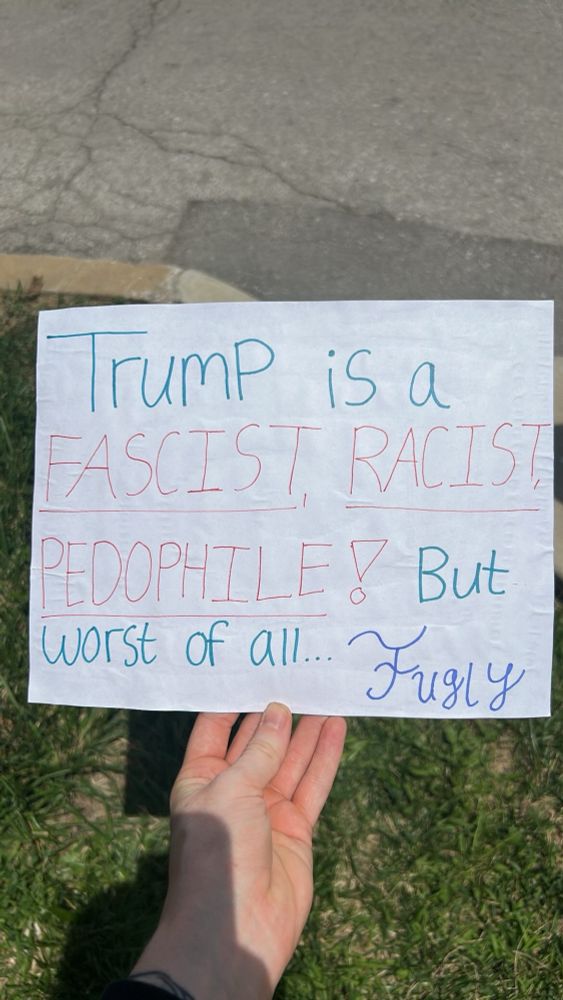 Trump is a
FASCIST, RACIST,
PEDOPHILE! But
worst of all... Fugly